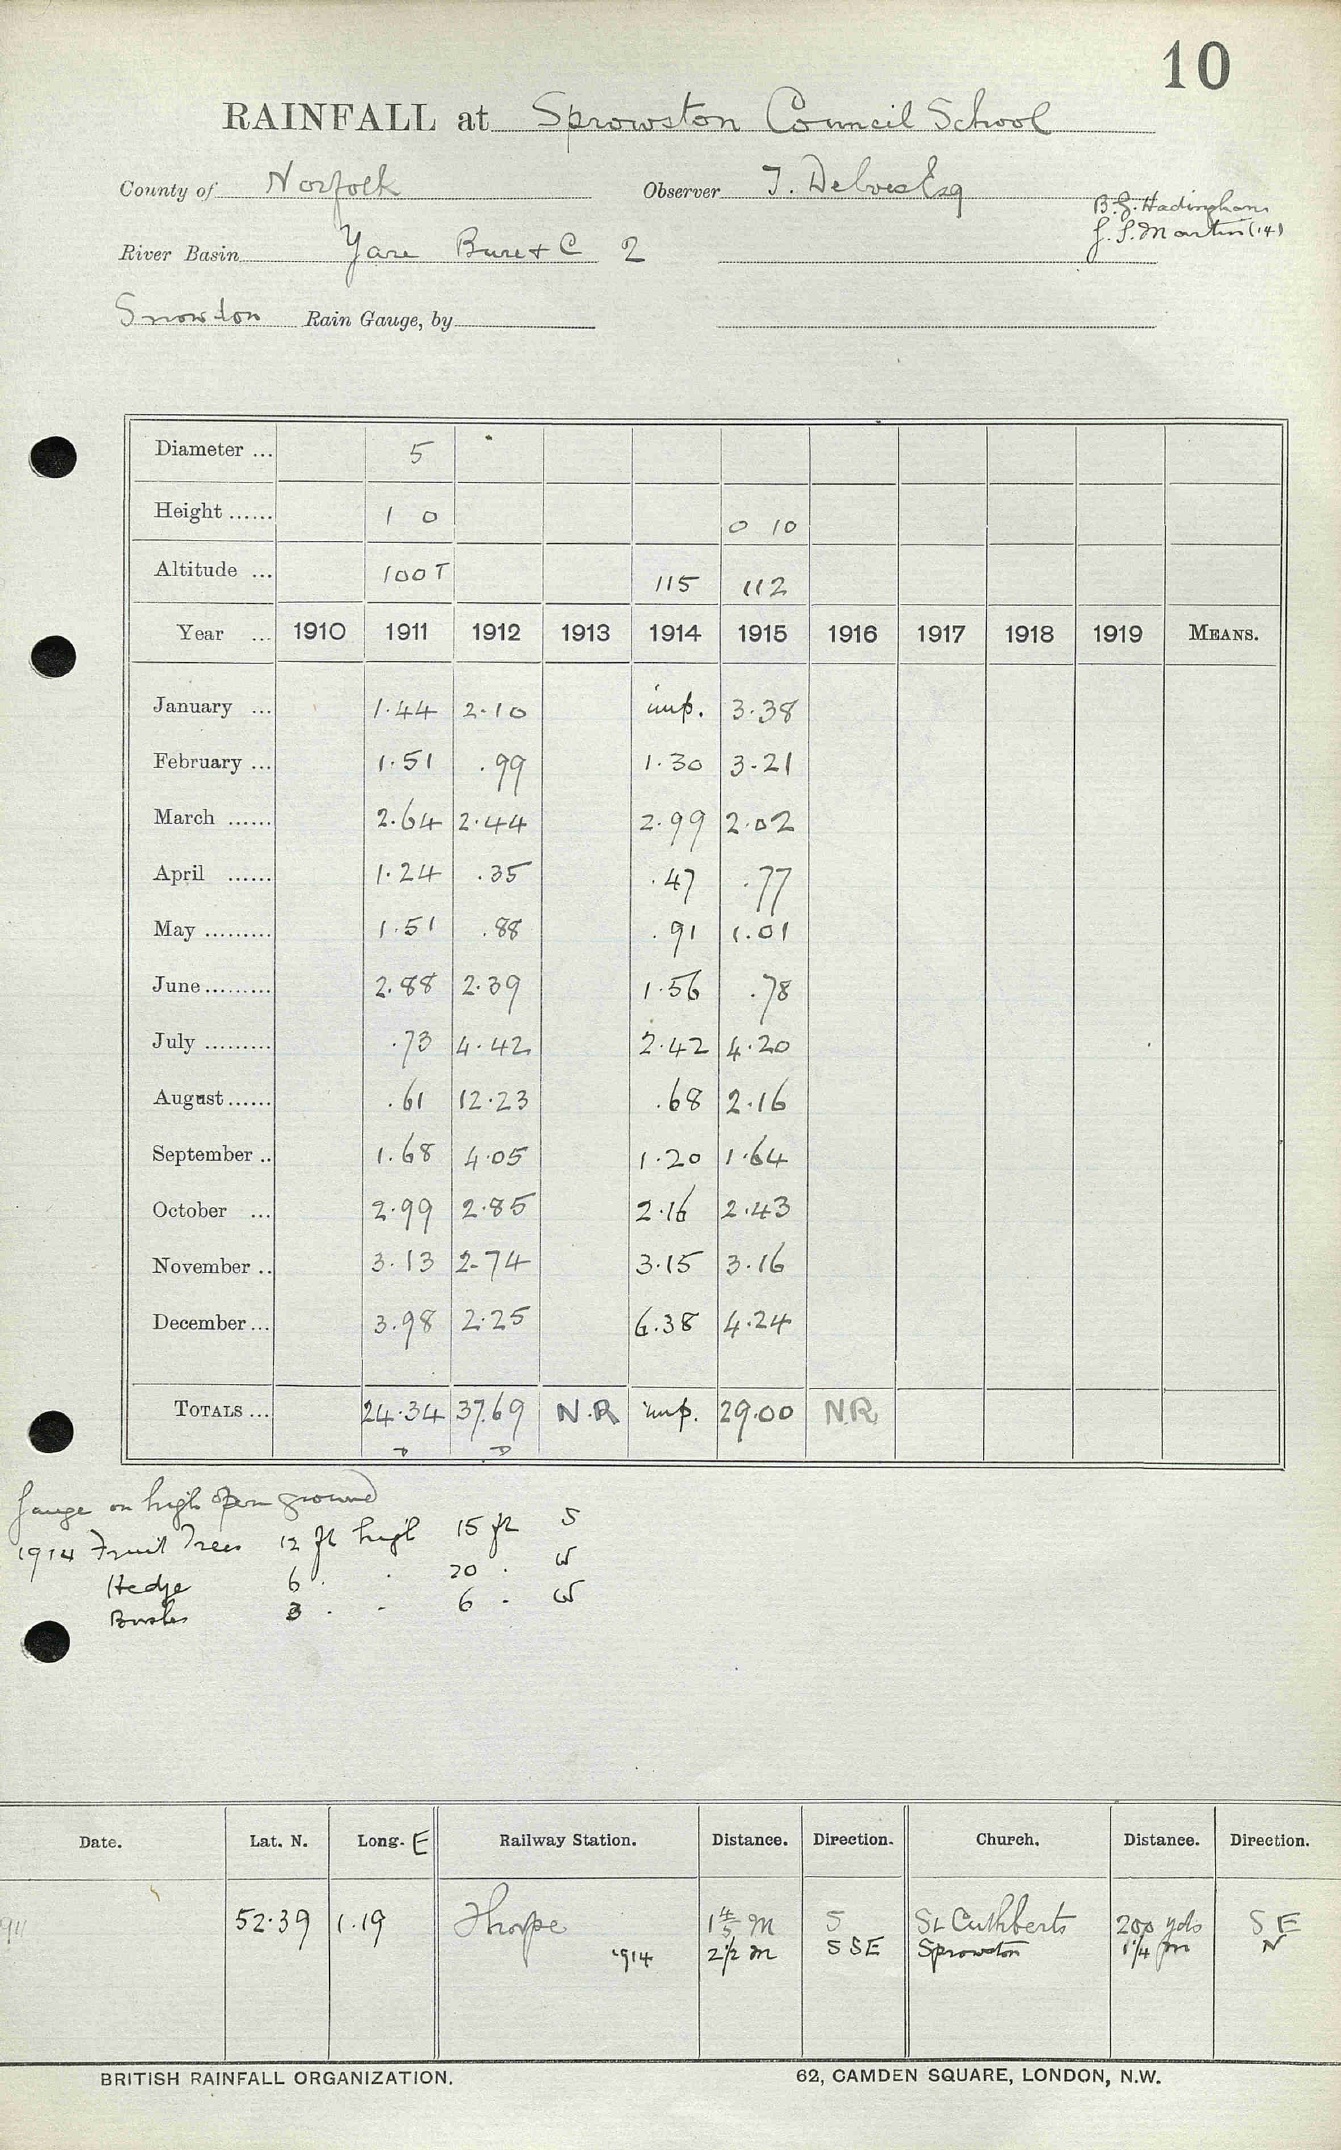 10
RAINFALL at Sprowston Council School
County of Norfolk Observer T. Delves Esq
B. G. Hadingham
J. S. Martin (14)
River Basin Yare Bure & C 2
Snowdon Rain Gauge, by
Diameter ... 5
Height ...... 1 0 0 10
Altitude ... 100 T 115 112
Year ... 1910 1911 1912 1913 1914 1915 1916 1917 1918 1919 MEANS.
January ... 1.44 2.10 imp. 3.38
February ... 1.51 .99 1.30 3.21
March ...... 2.64 2.44 2.99 2.02
April ...... 1.24 .35 .47 .77
May ......... 1.51 .88 .91 1.01
June ......... 2.88 2.39 1.56 .78
July ......... .73 4.42 2.42 4.20
August ...... .61 12.23 .68 2.16
September .. 1.68 4.05 1.20 1.64
October ... 2.99 2.85 2.16 2.43
November .. 3.13 2.74 3.15 3.16
December ... 3.98 2.25 6.38 4.24
TOTALS ... 24.34 37.69 N.R imp. 29.00 N.R.
D D
Gauge on high open ground
1914 Fruit Trees 12 ft high 15 ft S
Hedge 6 . . 20 . W
Bushes 3 . - 6 - W
Date. Lat. N. Long. E Railway Station. Distance. Direction. Church. Distance. Direction.
911 52.39 1.19 Thorpe 1 4/5 M S St Cuthberts 200 yds S E
1914 2 1/2 m S S E Sprowston 1 1/4 m N
BRITISH RAINFALL ORGANIZATION. 62, CAMDEN SQUARE, LONDON, N.W.